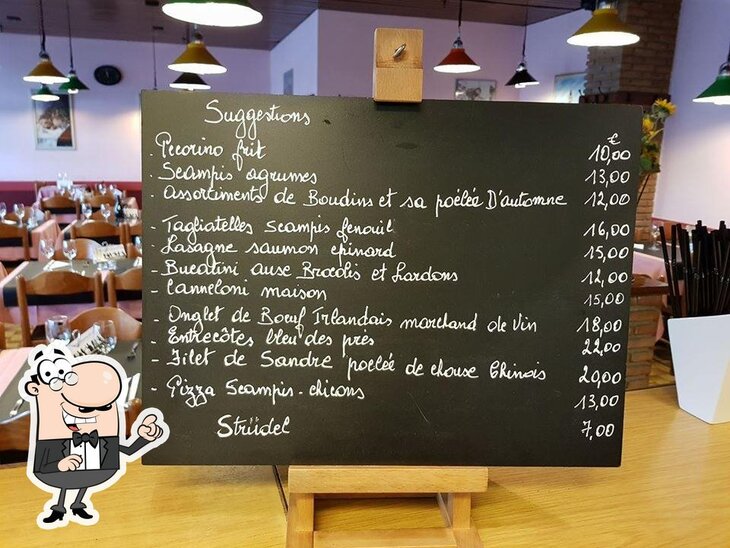 Suggestions
€
- Pecorino frit 10,00
- Scampis agrumes 13,00
- Assortiments de Boudins et sa poêlée D'automne 12,00
- Tagliatelles scampis fenouil 16,00
- Lasagne saumon epinard 15,00
- Bucatini ausc Brocolis et Lardons 12,00
- Canneloni maison 15,00
- Onglet de Bœuf Irlandais marchand de vin 18,00
- Entrecôtes bleu des prés 22,00
- Filet de Sandre poelée de chouse Chinois 20,00
- Pizza Scampis-chicons 13,00
Strüdel 7,00